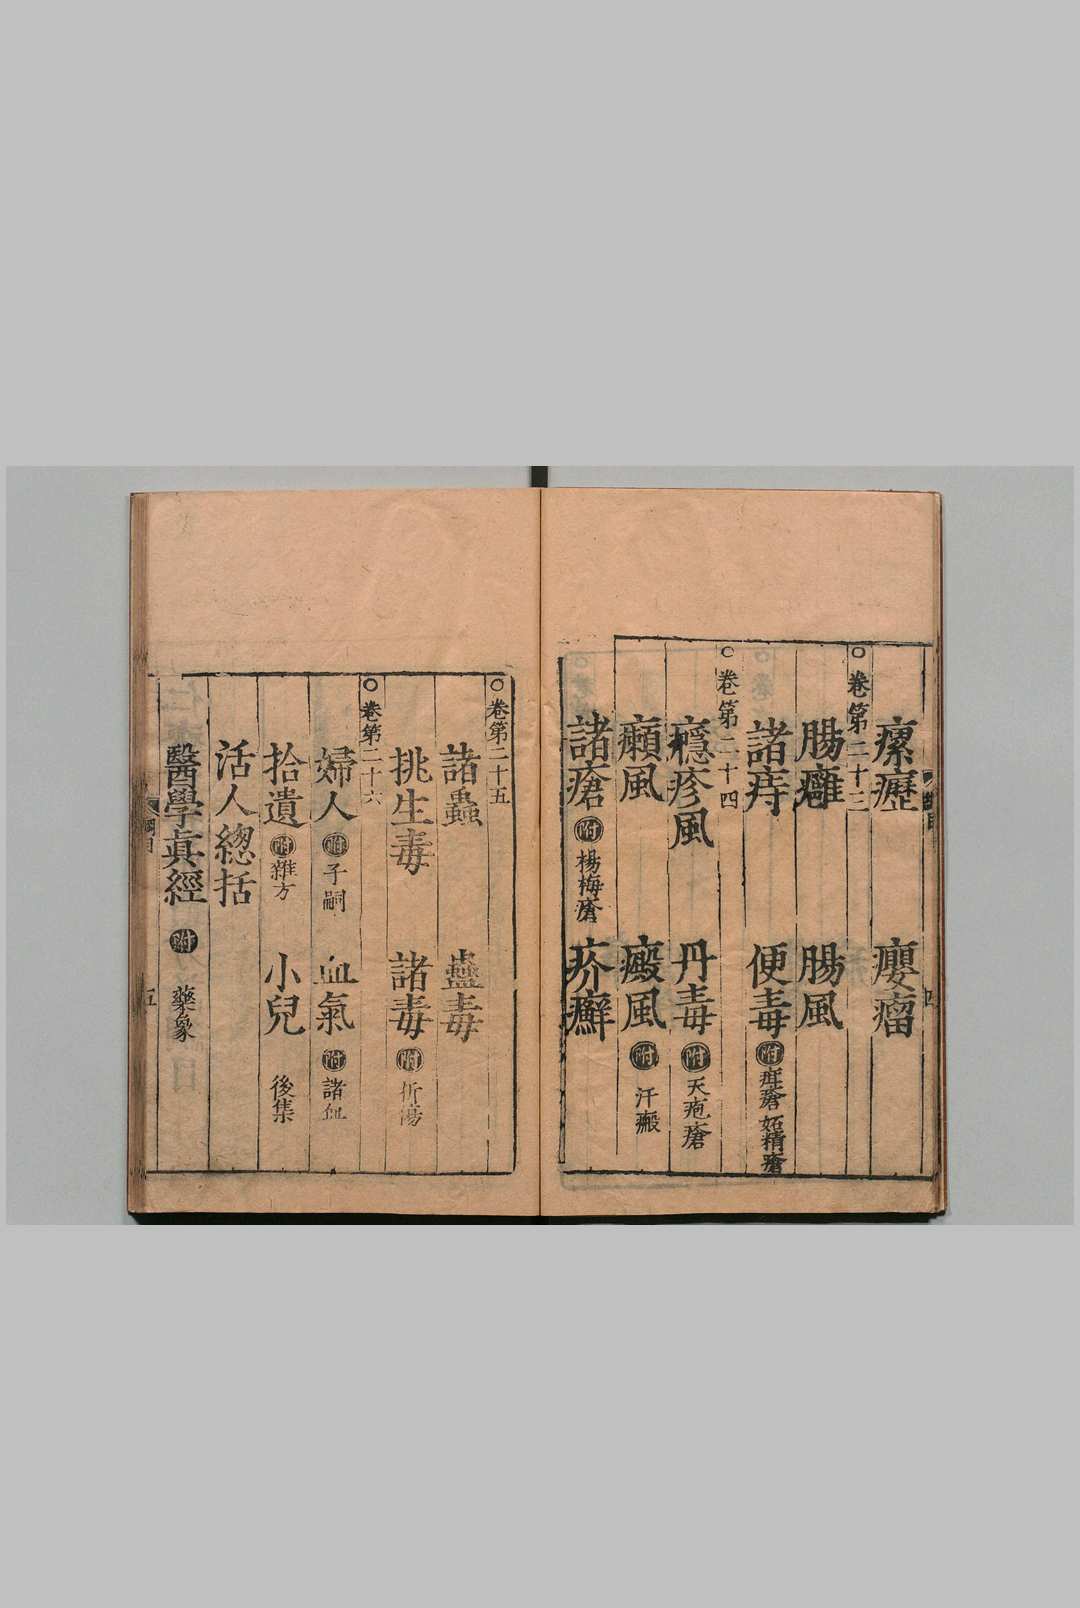 瘰癧 癭瘤
○卷第二十三
腸癰 腸風
諸痔 便毒 附 疳瘡 妬精瘡
○卷第二十四
癮疹風 丹毒 附 天疱瘡
癩風 癜風 附 汗癜
諸瘡 附 楊梅瘡 疥癬
○卷第二十五
諸蟲 蠱毒
挑生毒 諸毒 附 折湯
○卷第二十六
婦人 附 子嗣 血氣 附 諸血
拾遺 附 雜方 小兒 後集
活人總括
醫學眞經 附 藥象
綱目 五